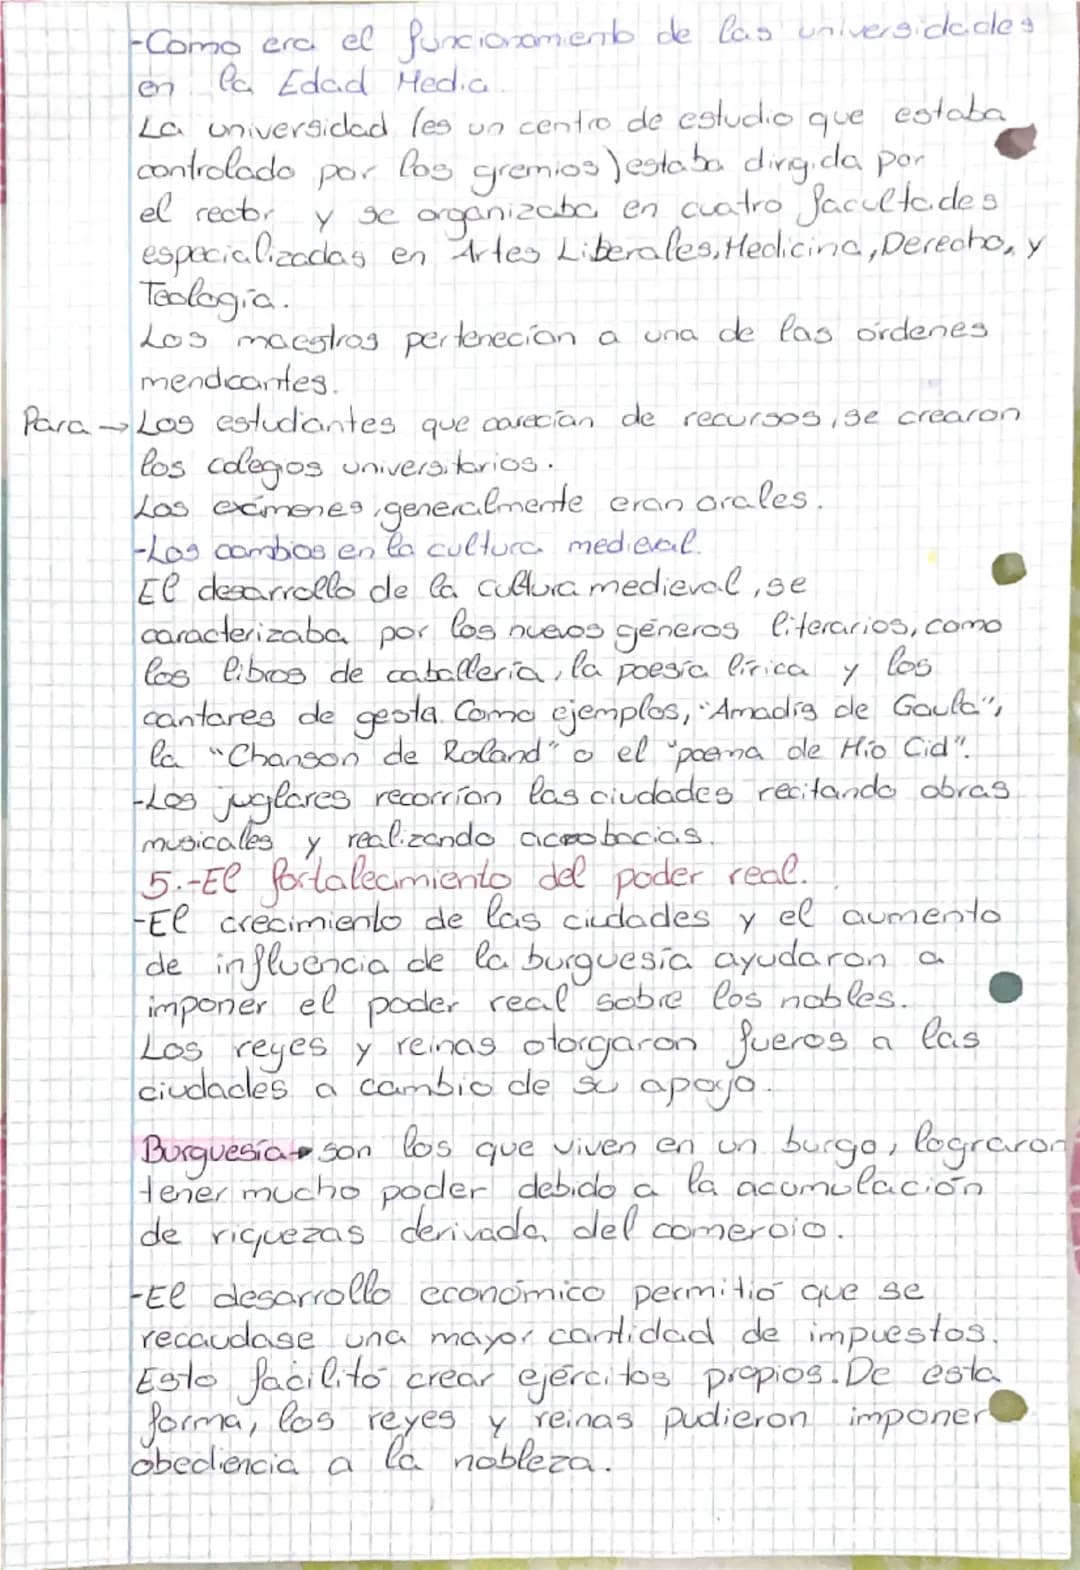 -Como era el funcionamiento de las universidades
en la Edad Media.
La universidad (es un centro de estudio que estaba
controlado por los gremios) estaba dirigida por
el rector y se organizaba en cuatro facultades
especializadas en Artes Liberales, Medicina, Derecho, y
Teología.
Los maestros pertenecían a una de las órdenes
mendicantes.
Para → Los estudiantes que carecían de recursos, se crearon
los colegios universitarios.
Los exámenes, generalmente eran orales.
-Los cambios en la cultura medieval.
El desarrollo de la cultura medieval, se
caracterizaba por los nuevos géneros literarios, como
los libros de caballería, la poesía lírica y los
cantares de gesta. Como ejemplos, "Amadís de Gaula",
la "Chanson de Roland" o el "poema de Mío Cid".
-Los juglares recorrían las ciudades recitando obras
musicales y realizando acrobacias.
5.-El fortalecimiento del poder real.
-El crecimiento de las ciudades y el aumento
de influencia de la burguesía ayudaron a
imponer el poder real sobre los nobles.
Los reyes y reinas otorgaron fueros a las
ciudades a cambio de su apoyo.
Burguesía→ son los que viven en un burgo, lograron
tener mucho poder debido a la acumulación
de riquezas derivada del comercio.
-El desarrollo económico permitió que se
recaudase una mayor cantidad de impuestos.
Esto facilitó crear ejércitos propios. De esta
forma, los reyes y reinas pudieron imponer
obediencia a la nobleza.